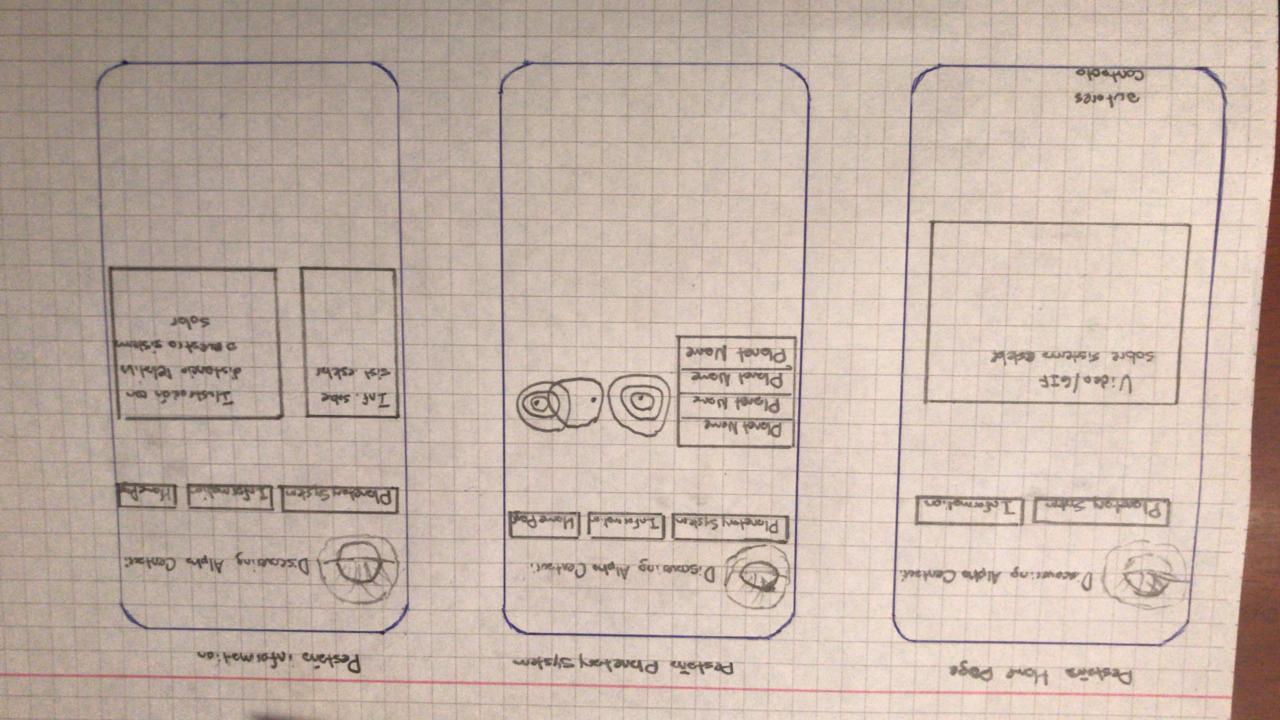 Pestaña Home Page
Discovering Alpha Centauri.
Planetary System
Information
Video/GIF
sobre sistema estelar
autores
Contacto
Pestaña Planetary System
Discovering Alpha Centauri.
Planetary System
Information
Home Page
Planet Name
Planet Name
Planet Name
Planet Name
Pestaña information
Discovering Alpha Centauri
Planetary System
Information
Home Page
Inf. sobre
sist. estelar
Ilustración con
distancia relativa
a nuestro sistema
solar